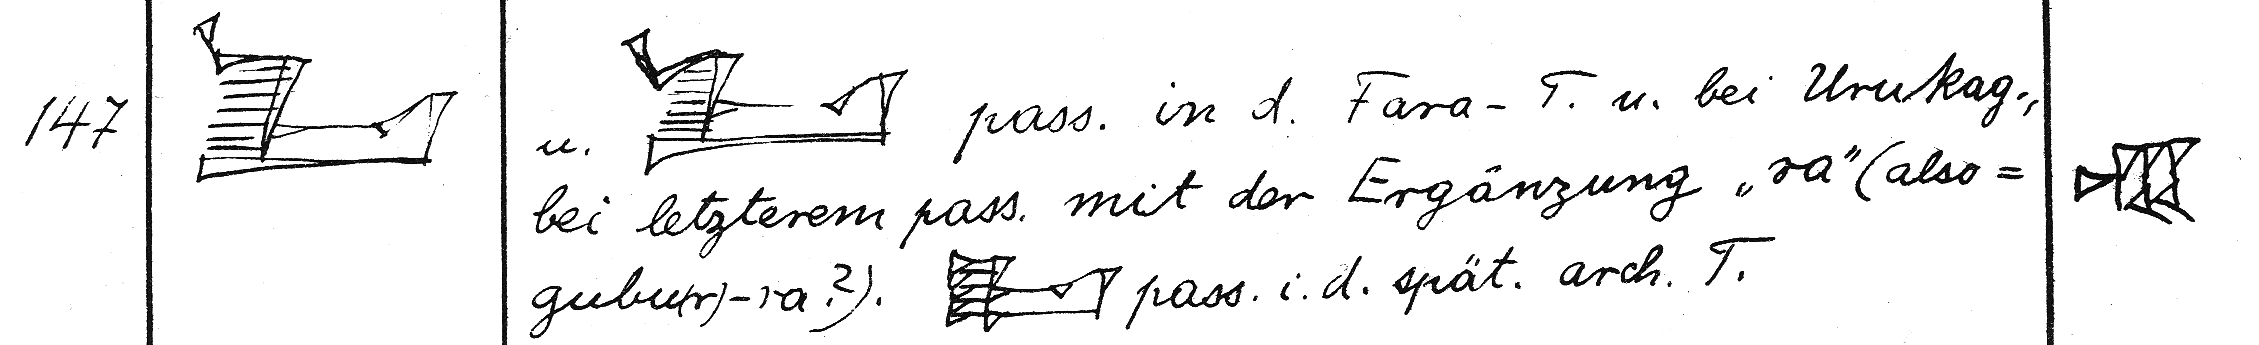 147
u. pass. in d. Fara-T. u. bei Urukag.,
bei letzterem pass. mit der Ergänzung „ra” (also =
gubu(r)-ra?). pass. i. d. spät. arch. T.